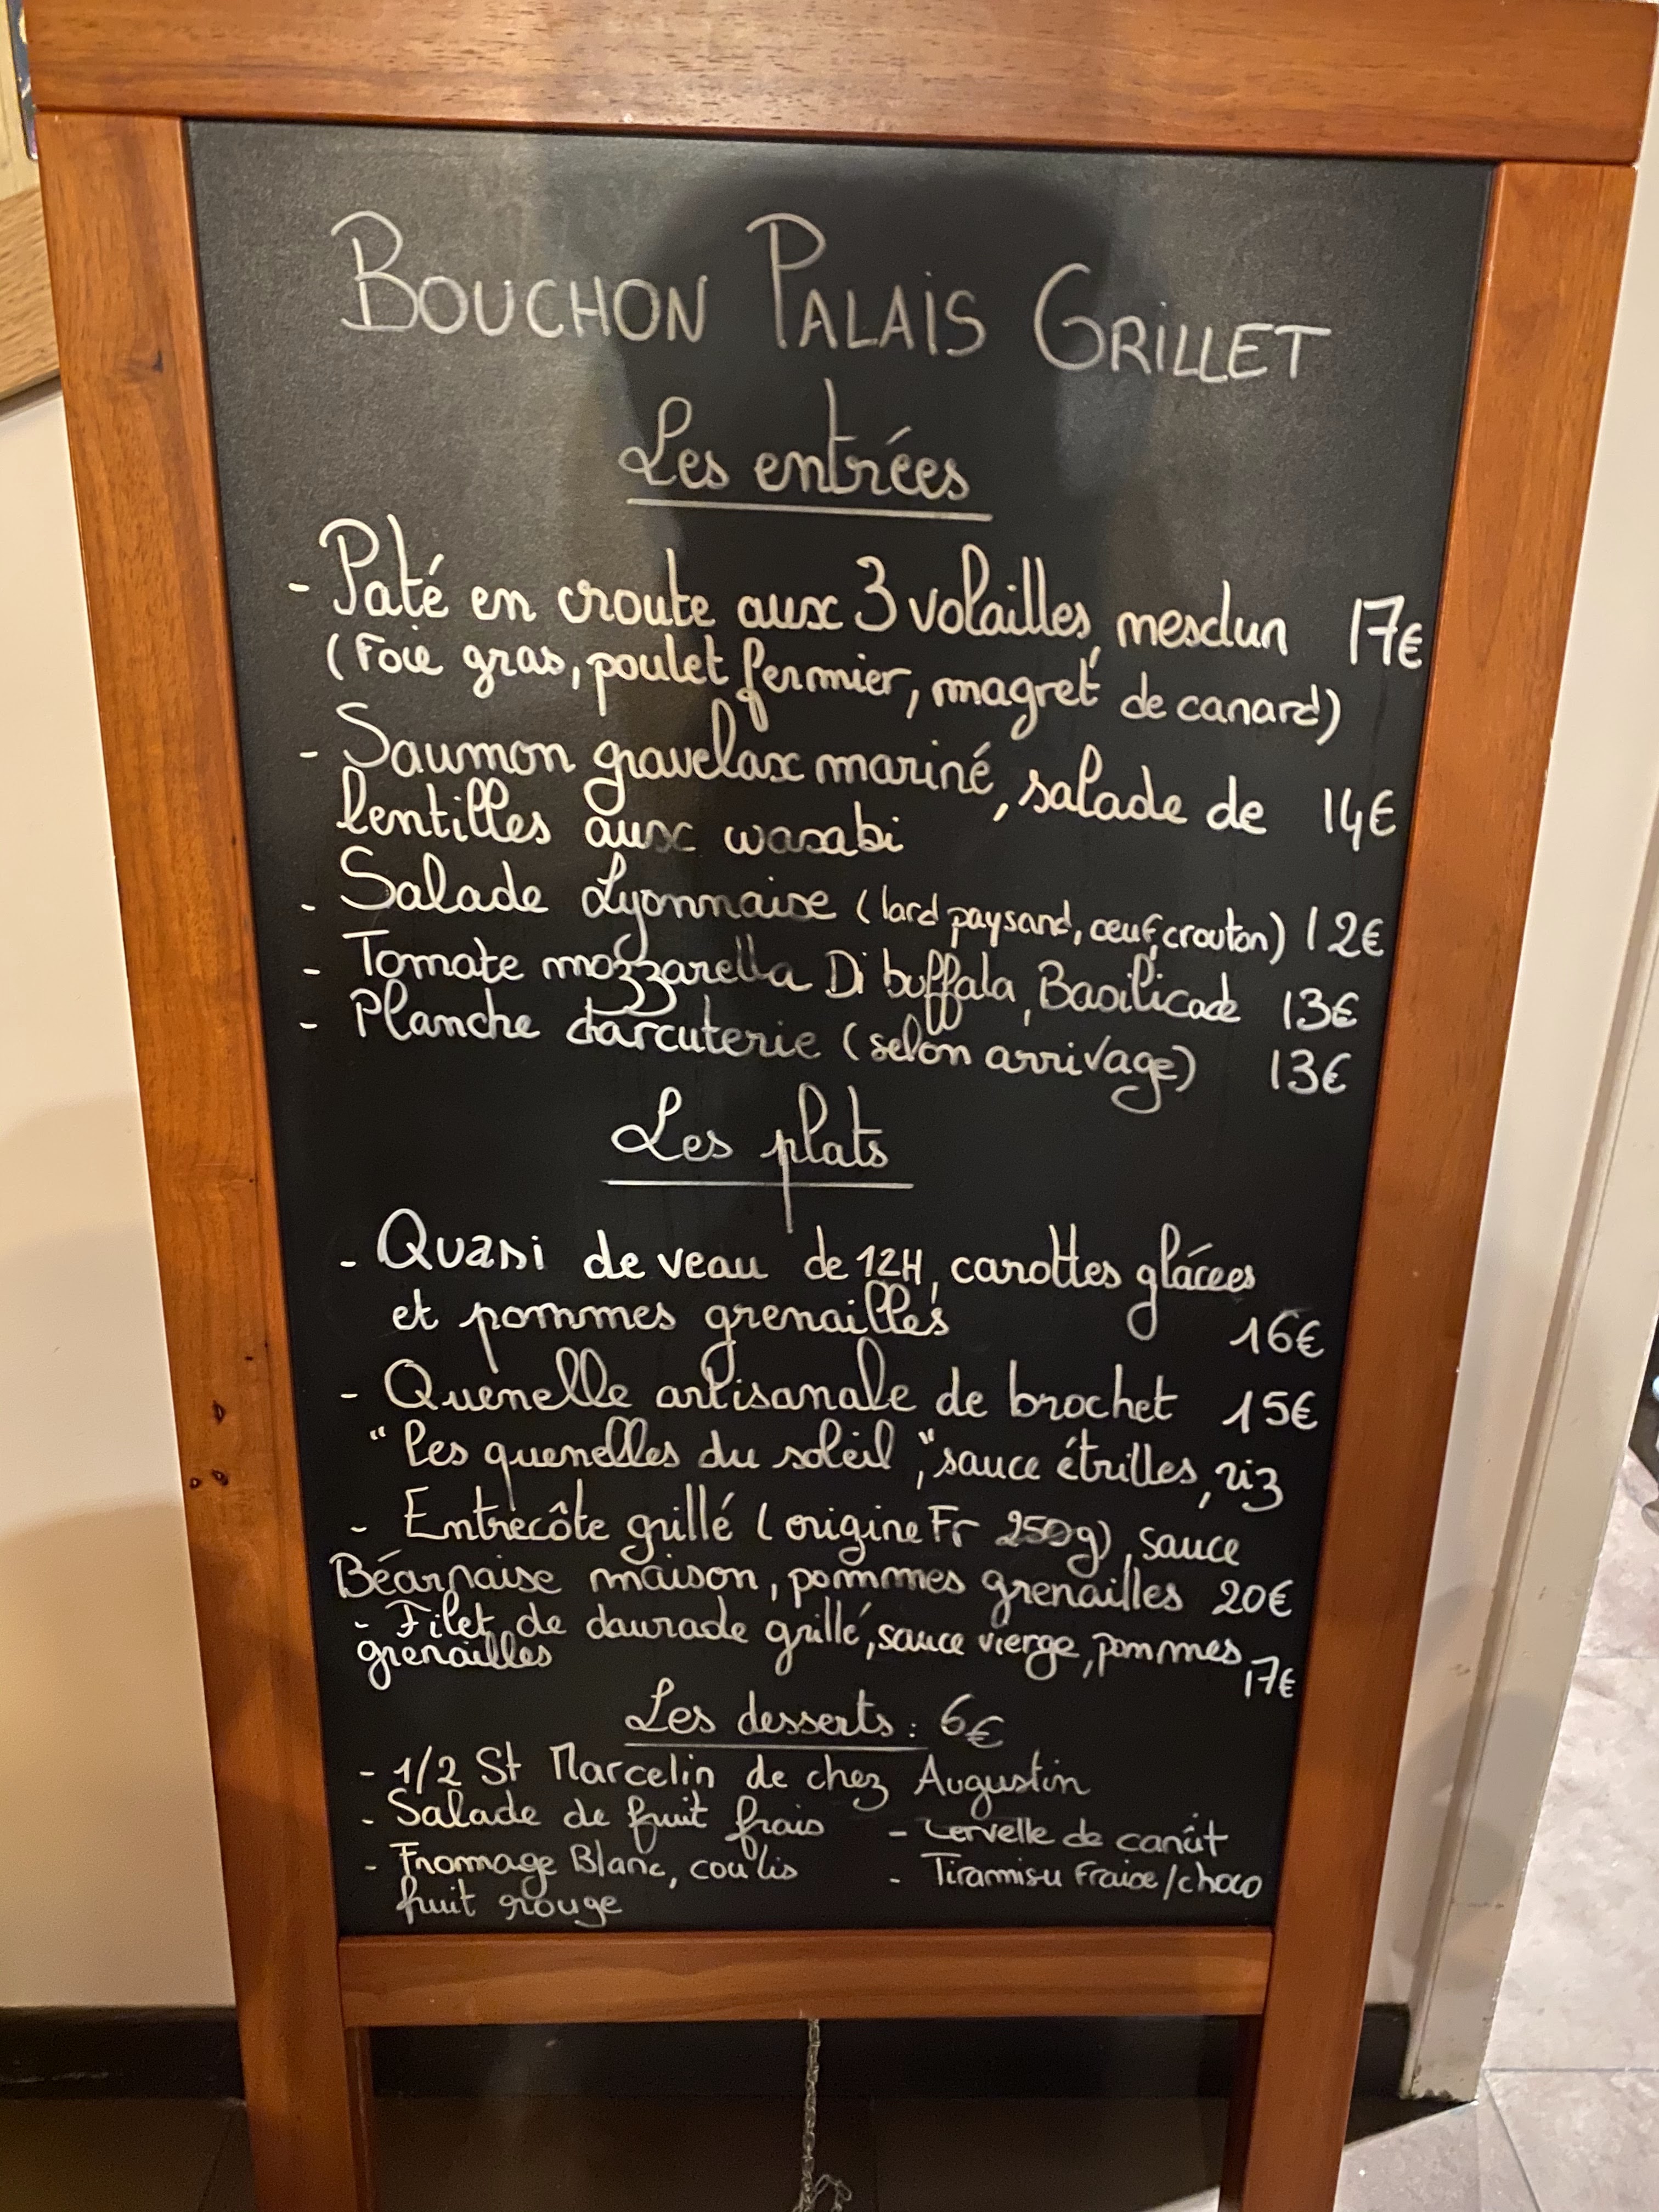 BOUCHON PALAIS GRILLET
Les entrées
- Paté en croute aux 3 volailles, mesclun 17€
(Foie gras, poulet fermier, magret de canard)
- Saumon gravelax mariné, salade de 14€
lentilles aux wasabi
- Salade Lyonnaise (lard paysand, œuf, crouton) 12€
- Tomate mozzarella Di buffala, Basilicade 13€
- Planche charcuterie (selon arrivage) 13€
Les plats
- Quasi de veau de 12H, carottes glácées
et pommes grenailles 16€
- Quenelle artisanale de brochet 15€
"les quenelles du soleil", sauce étrilles, riz
- Entrecôte grillé (origine Fr 250g), sauce
Béarnaise maison, pommes grenailles 20€
- Filet de daurade grillé, sauce vierge, pommes
grenailles 17€
Les desserts : 6€
- 1/2 St Marcelin de chez Augustin
- Salade de fruit frais
- Fromage Blanc, coulis
fruit rouge
- Cervelle de canût
- Tiramisu Fraise/choco